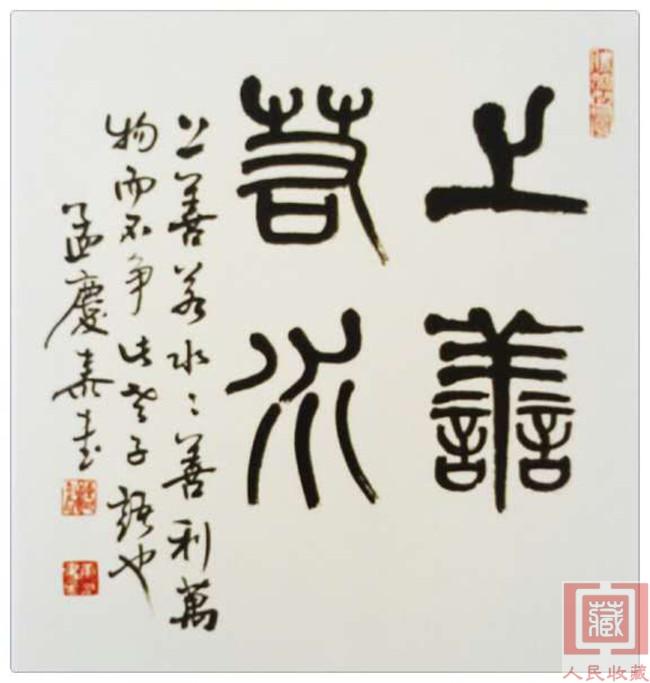 上善
若水
上善若水水善利萬
物而不争此老子語也
孟慶嘉書
藏
人民收藏